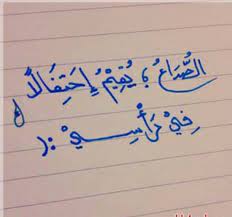 الصُّدَاعُ ؛ يُقِيْمُ إِحْتِفَالاً
فِيْ رَأْسِيْ :(